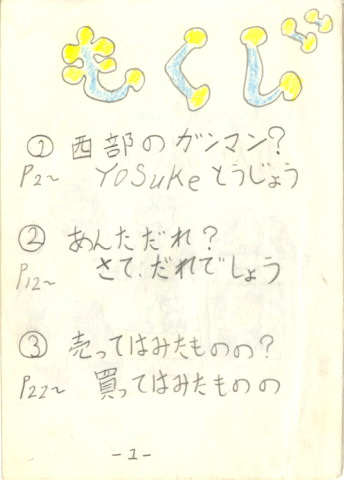 もくじ
① 西部のガンマン?
P2~ YOSUKeとうじょう
② あんただれ?
P12~ さて、だれでしょう
③ 売ってはみたものの?
P22~ 買ってはみたものの
-1-